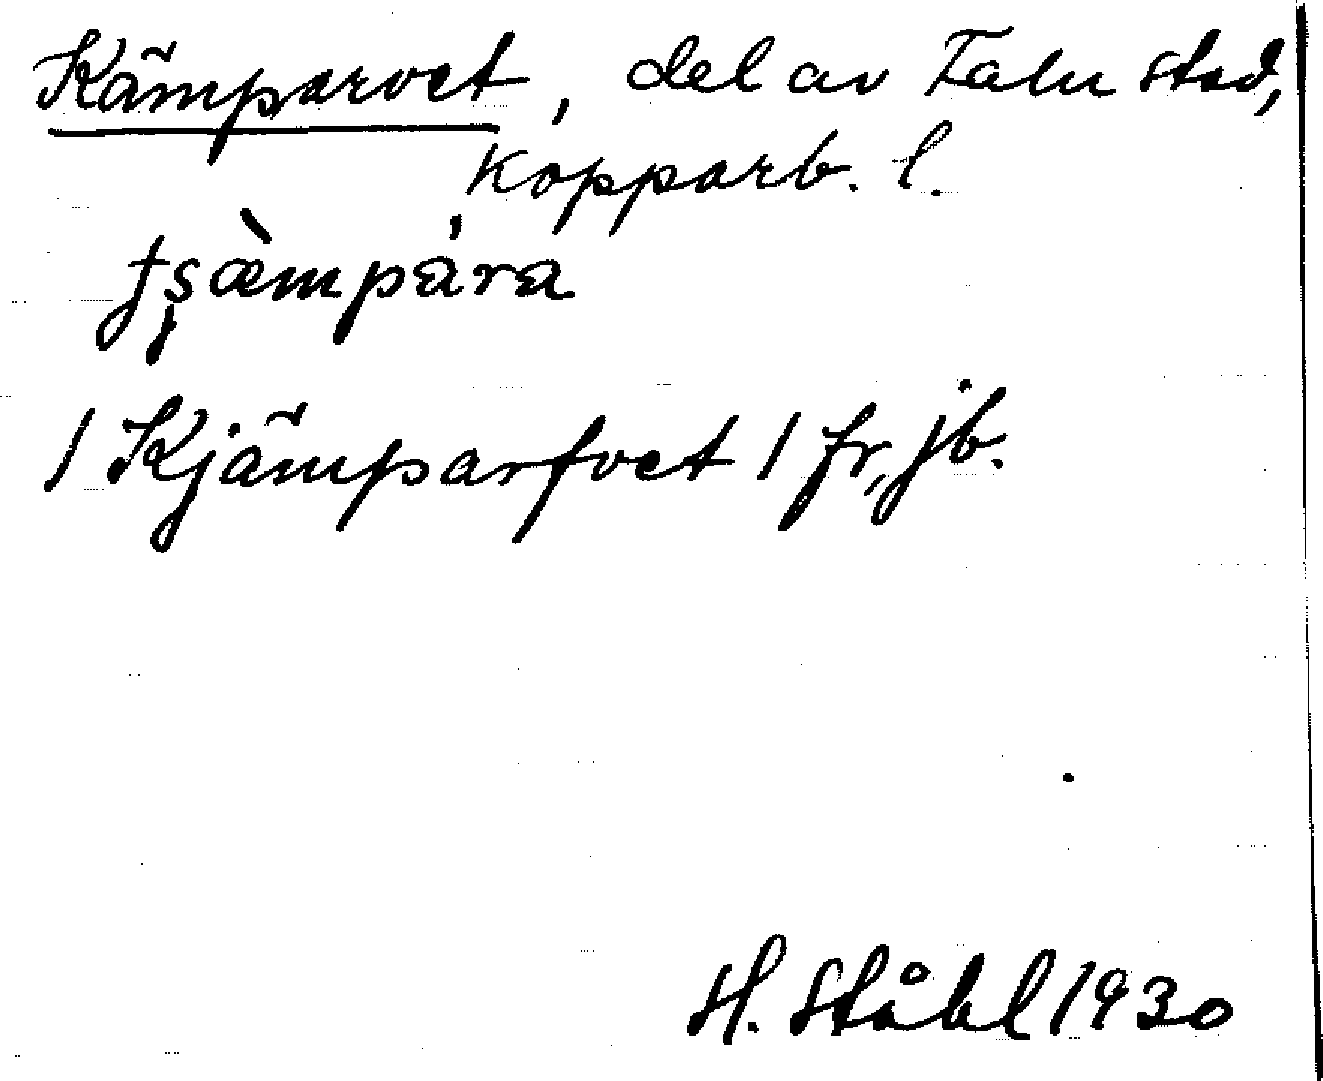 Kämparvet, del av Falu stad,
Kopparb. l.
tʂæ̀mpára
/Kjämparfvet/ fr. jb.
H. Ståhl 1930